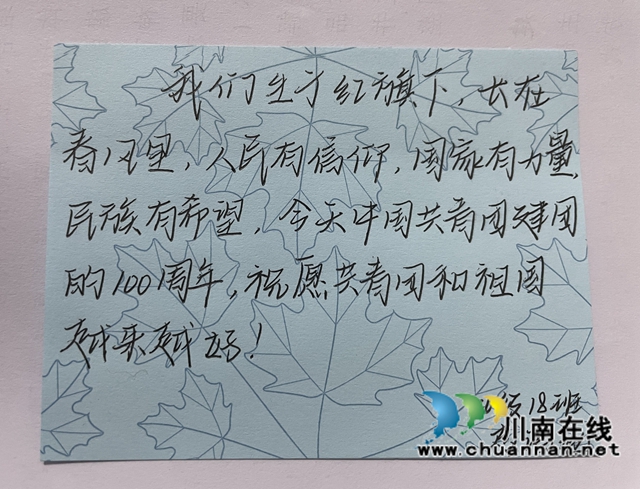 我们生于红旗下，长在
春风里，人民有信仰，国家有力量，
民族有希望，今天中国共青团建团
的100周年，祝愿共青团和祖国
越来越好！
18班
川南在线
www.chuannan.net